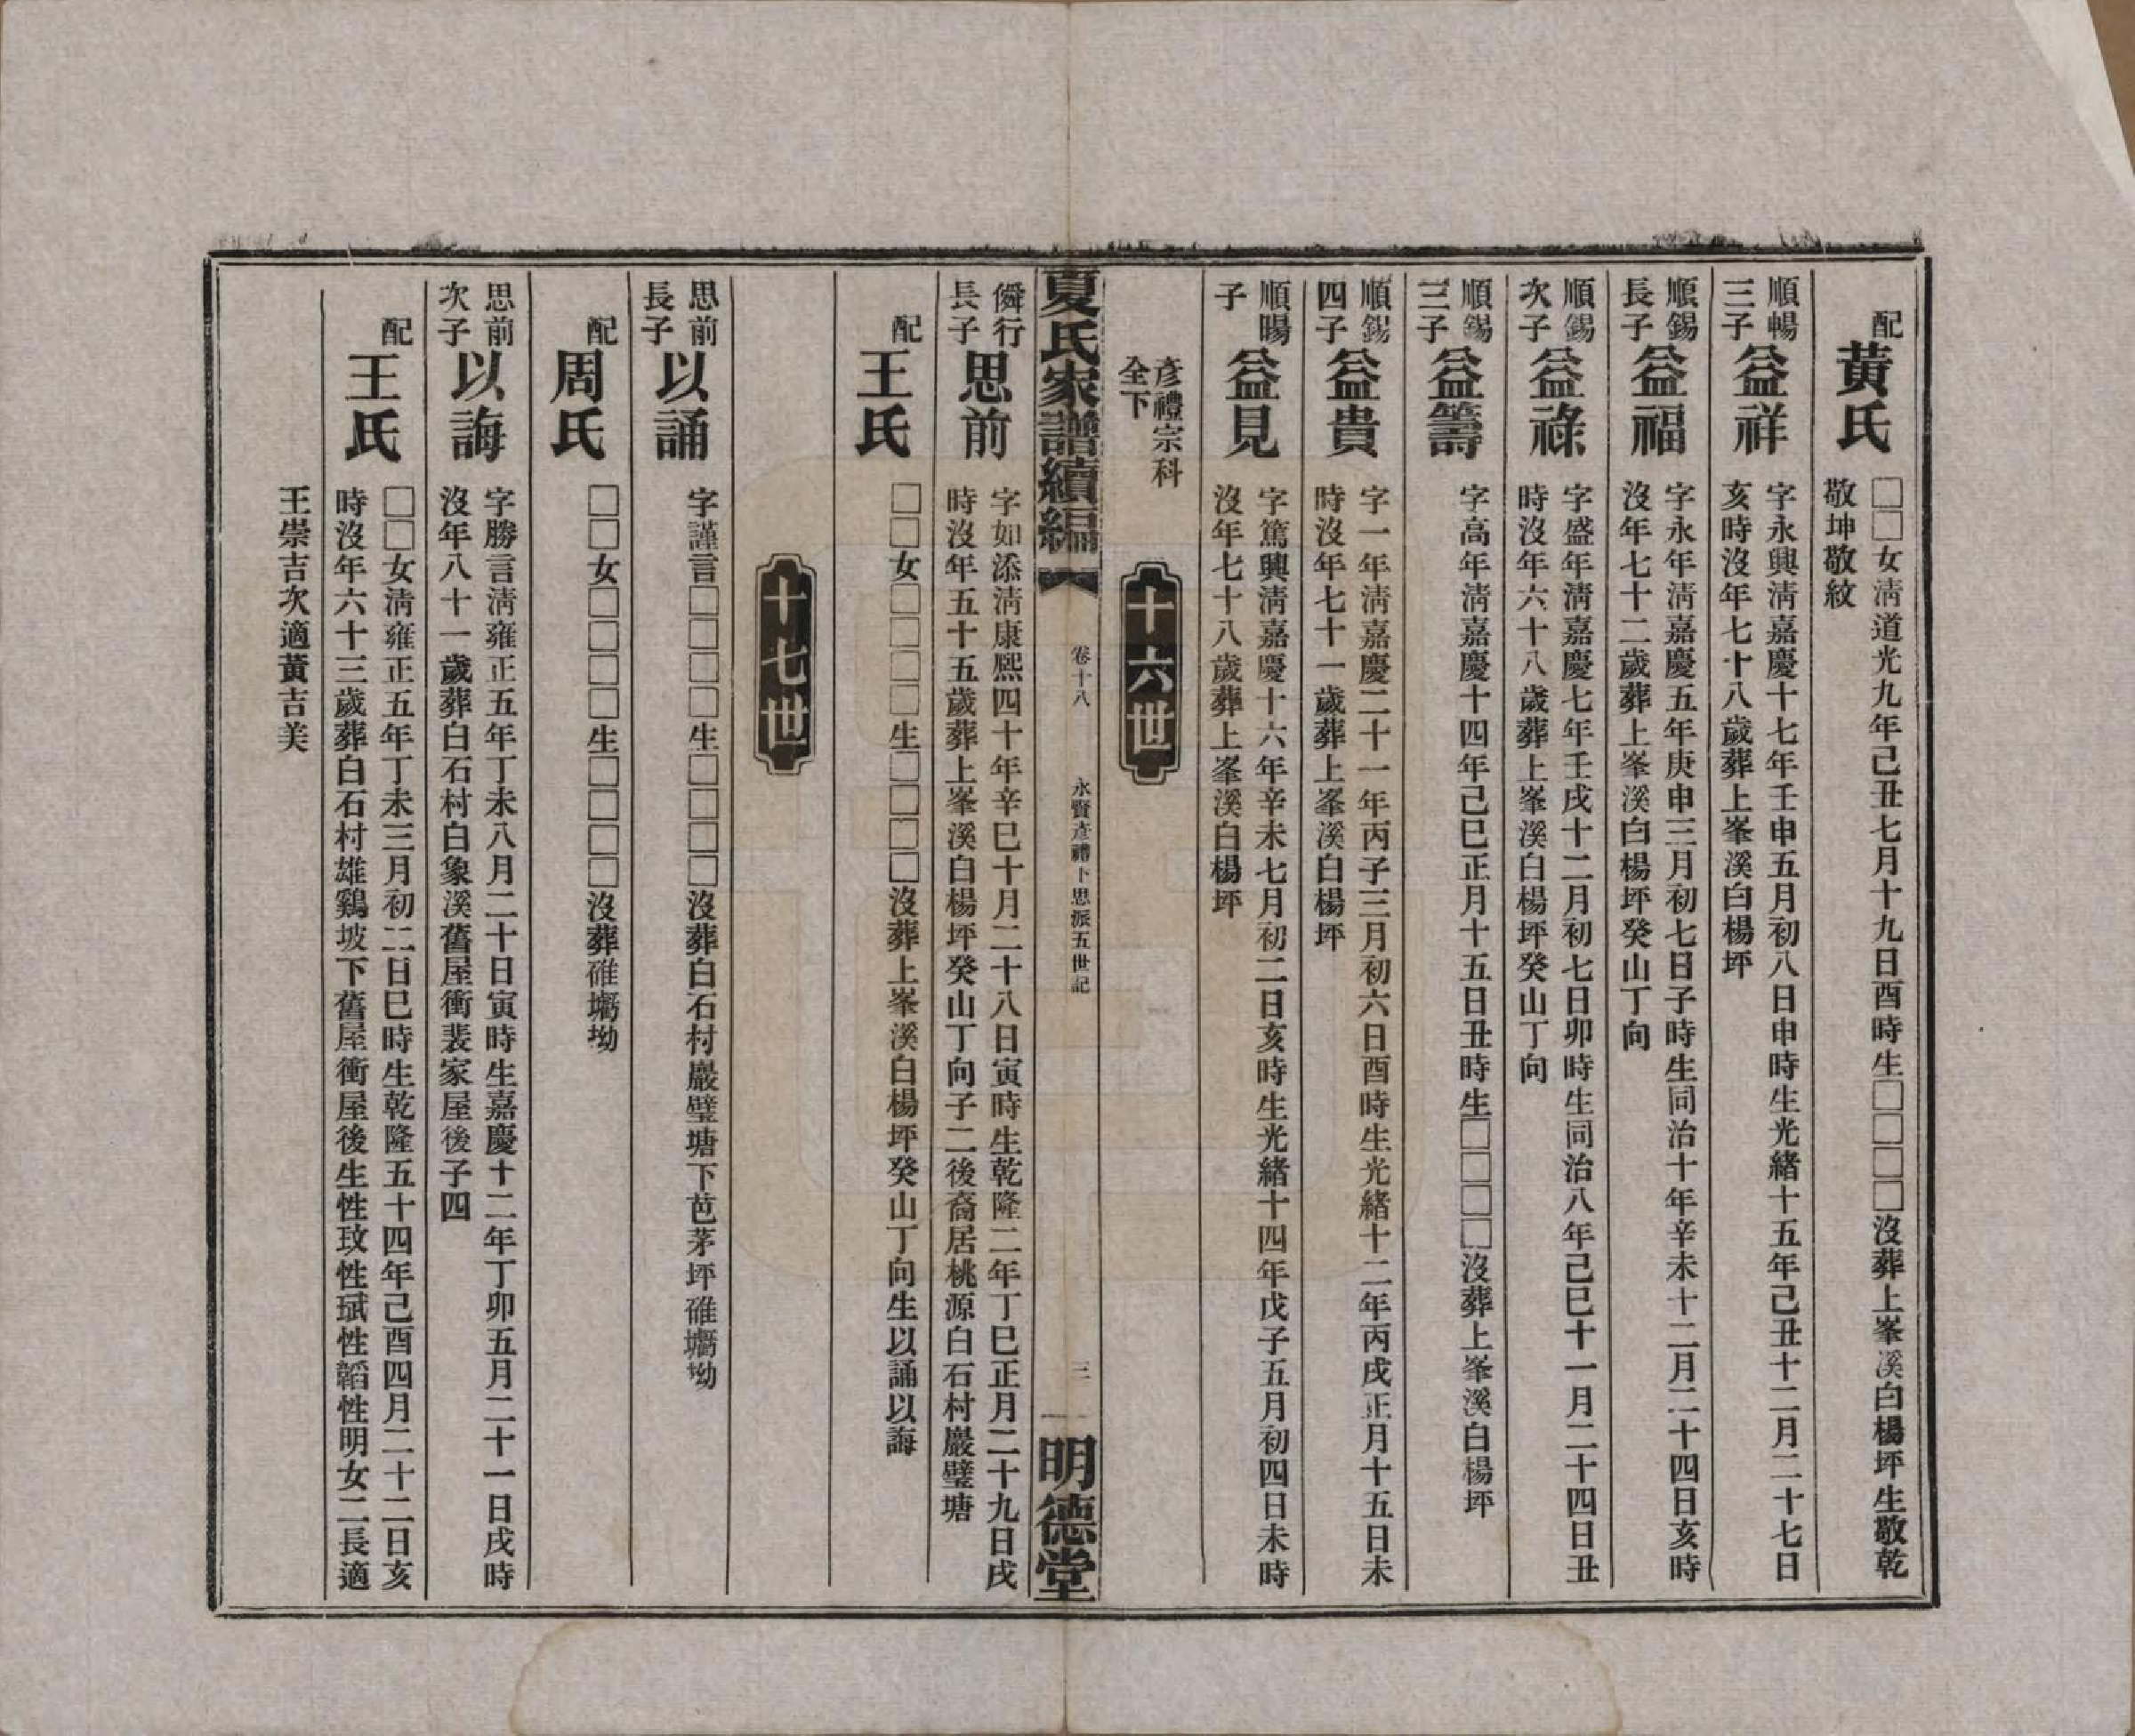 配
黃氏
□□女淸道光九年己丑七月十九日酉時生□□□□沒葬上峯溪白楊坪生敬乾
敬坤敬紋
順暢
三子
益祥
字永興淸嘉慶十七年壬申五月初八日申時生光緒十五年己丑十二月二十七日
亥時沒年七十八歲葬上峯溪白楊坪
順錫
長子
益福
字永年淸嘉慶五年庚申三月初七日子時生同治十年辛未十二月二十四日亥時
沒年七十二歲葬上峯溪白楊坪癸山丁向
順錫
次子
益祿
字盛年淸嘉慶七年壬戌十二月初七日卯時生同治八年己巳十一月二十四日丑
時沒年六十八歲葬上峯溪白楊坪癸山丁向
順錫
三子
益籌
字高年淸嘉慶十四年己巳正月十五日丑時生□□□□沒葬上峯溪白楊坪
順錫
四子
益貴
字一年淸嘉慶二十一年丙子三月初六日酉時生光緒十二年丙戌正月十五日未
時沒年七十一歲葬上峯溪白楊坪
順暘
子
益見
字篤興淸嘉慶十六年辛未七月初二日亥時生光緒十四年戊子五月初四日未時
沒年七十八歲葬上峯溪白楊坪
彥禮宗科
全下
十六世
夏氏家譜續編
卷十八
永賢彥禮下思派五世記
三
明德堂
僯行
長子
思前
字如添淸康熙四十年辛巳十月二十八日寅時生乾隆二年丁巳正月二十九日戌
時沒年五十五歲葬上峯溪白楊坪癸山丁向子二後裔居桃源白石村巖壁塘
配
王氏
□□女□□□□生□□□□沒葬上峯溪白楊坪癸山丁向生以誦以誨
十七世
思前
長子
以誦
字謹言□□□□生□□□□沒葬白石村巖璧塘下芭茅坪碓壪坳
配
周氏
□□女□□□□生□□□□沒葬碓壪坳
思前
次子
以誨
字勝言淸雍正五年丁未八月二十日寅時生嘉慶十二年丁卯五月二十一日戌時
沒年八十一歲葬白石村白象溪舊屋衝裴家屋後子四
配
王氏
□□女淸雍正五年丁未三月初二日巳時生乾隆五十四年己酉四月二十二日亥
時沒年六十三歲葬白石村雄鷄坡下舊屋衝屋後生性玟性珷性韜性明女二長適
王崇吉次適黃吉美